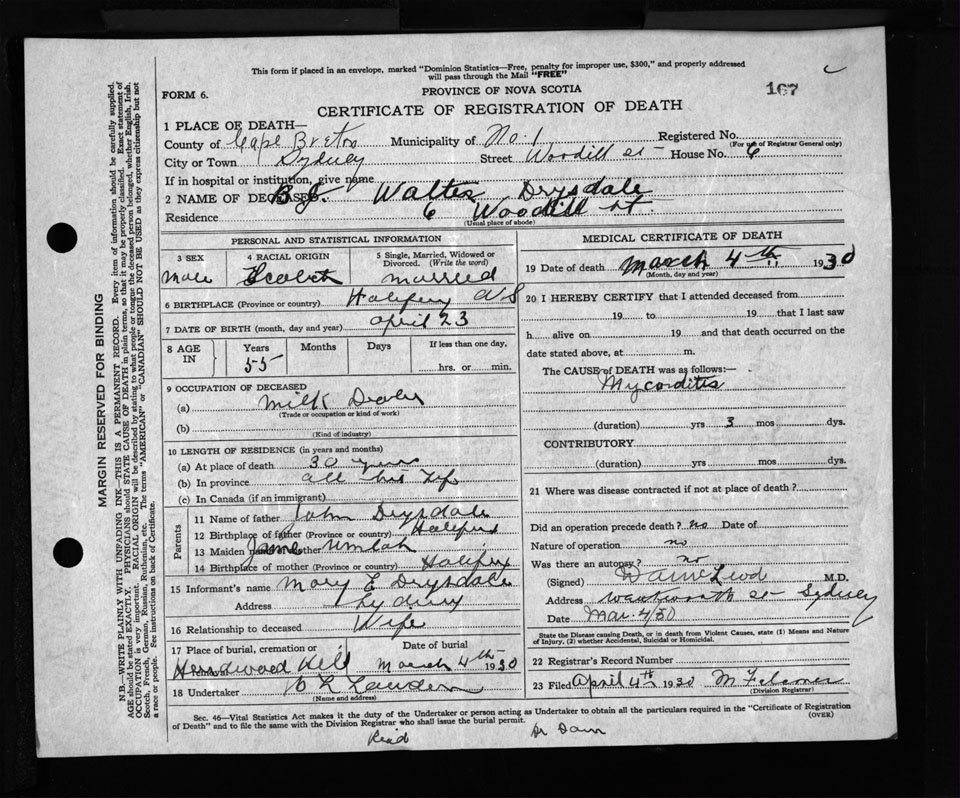 This form if placed in an envelope, marked "Dominion Statistics—Free, penalty for improper use, $300," and properly addressed
will pass through the Mail "FREE"
FORM 6.
PROVINCE OF NOVA SCOTIA
167
CERTIFICATE OF REGISTRATION OF DEATH
1 PLACE OF DEATH—
County of Cape Breton Municipality of No. 1 Registered No.
(For use of Registrar General only)
City or Town Sydney Street Woodill St House No. 6
If in hospital or institution, give name
2 NAME OF DECEASED B.J. Walter Drysdale
Residence 6 Woodill St.
(Usual place of abode)
PERSONAL AND STATISTICAL INFORMATION
3 SEX Male
4 RACIAL ORIGIN Scotch
5 Single, Married, Widowed or Divorced. (Write the word) married
6 BIRTHPLACE (Province or country) Halifax N S
7 DATE OF BIRTH (month, day and year) april 23
8 AGE IN Years 55 Months Days If less than one day, hrs. or min.
9 OCCUPATION OF DECEASED
(a) Milk Dealer
(Trade or occupation or kind of work)
(b)
(Kind of industry)
10 LENGTH OF RESIDENCE (in years and months)
(a) At place of death 30 years
(b) In province all his Life
(c) In Canada (if an immigrant)
Parents
11 Name of father John Drysdale
12 Birthplace of father (Province or country) Halifax
13 Maiden name of mother Jane Umlah
14 Birthplace of mother (Province or country) Halifax
15 Informant's name Mary E Drysdale
Address Sydney
16 Relationship to deceased Wife
17 Place of burial, cremation or removal Hardwood Hill
Date of burial March 4th 1930
18 Undertaker
(Name and address)
MEDICAL CERTIFICATE OF DEATH
19 Date of death March 4th 1930
(Month, day and year)
20 I HEREBY CERTIFY that I attended deceased from
19 to 19 that I last saw
h alive on 19 and that death occurred on
date stated above, at m.
The CAUSE of DEATH was as follows:—
Mycorditis
(duration) yrs 3 mos dys.
CONTRIBUTORY
(duration) yrs. mos dys.
21 Where was disease contracted if not at place of death?
Did an operation precede death? no Date of
Nature of operation no
Was there an autopsy? no
(Signed) M.D.
Address Wentworth St Sydney
Date Mar. 4/30
State the Disease causing Death, or in death from Violent Causes, state (1) Means and Nature
of Injury, (2) whether Accidental, Suicidal or Homicidal.
22 Registrar's Record Number
23 Filed April 4th 1930
(Division Registrar)
Sec. 46—Vital Statistics Act makes it the duty of the Undertaker or person acting as Undertaker to obtain all the particulars required in the "Certificate of Registration
of Death" and to file the same with the Division Registrar who shall issue the burial permit.
(OVER)
MARGIN RESERVED FOR BINDING
N.B.—WRITE PLAINLY WITH UNFADING INK—THIS IS A PERMANENT RECORD. Every item of information should be carefully supplied.
AGE should be stated EXACTLY. PHYSICIANS should STATE CAUSE OF DEATH in plain terms, so that it may be properly classified. Exact statement of
OCCUPATION is very important. RACIAL ORIGIN will be described by stating to what people or tongue the deceased person belonged, whether English, Irish,
Scotch, French, German, Russian, Ruthenian, etc. The terms "AMERICAN" or "CANADIAN" SHOULD NOT BE USED as they express citizenship but not
a race or people. See instructions on back of Certificate.